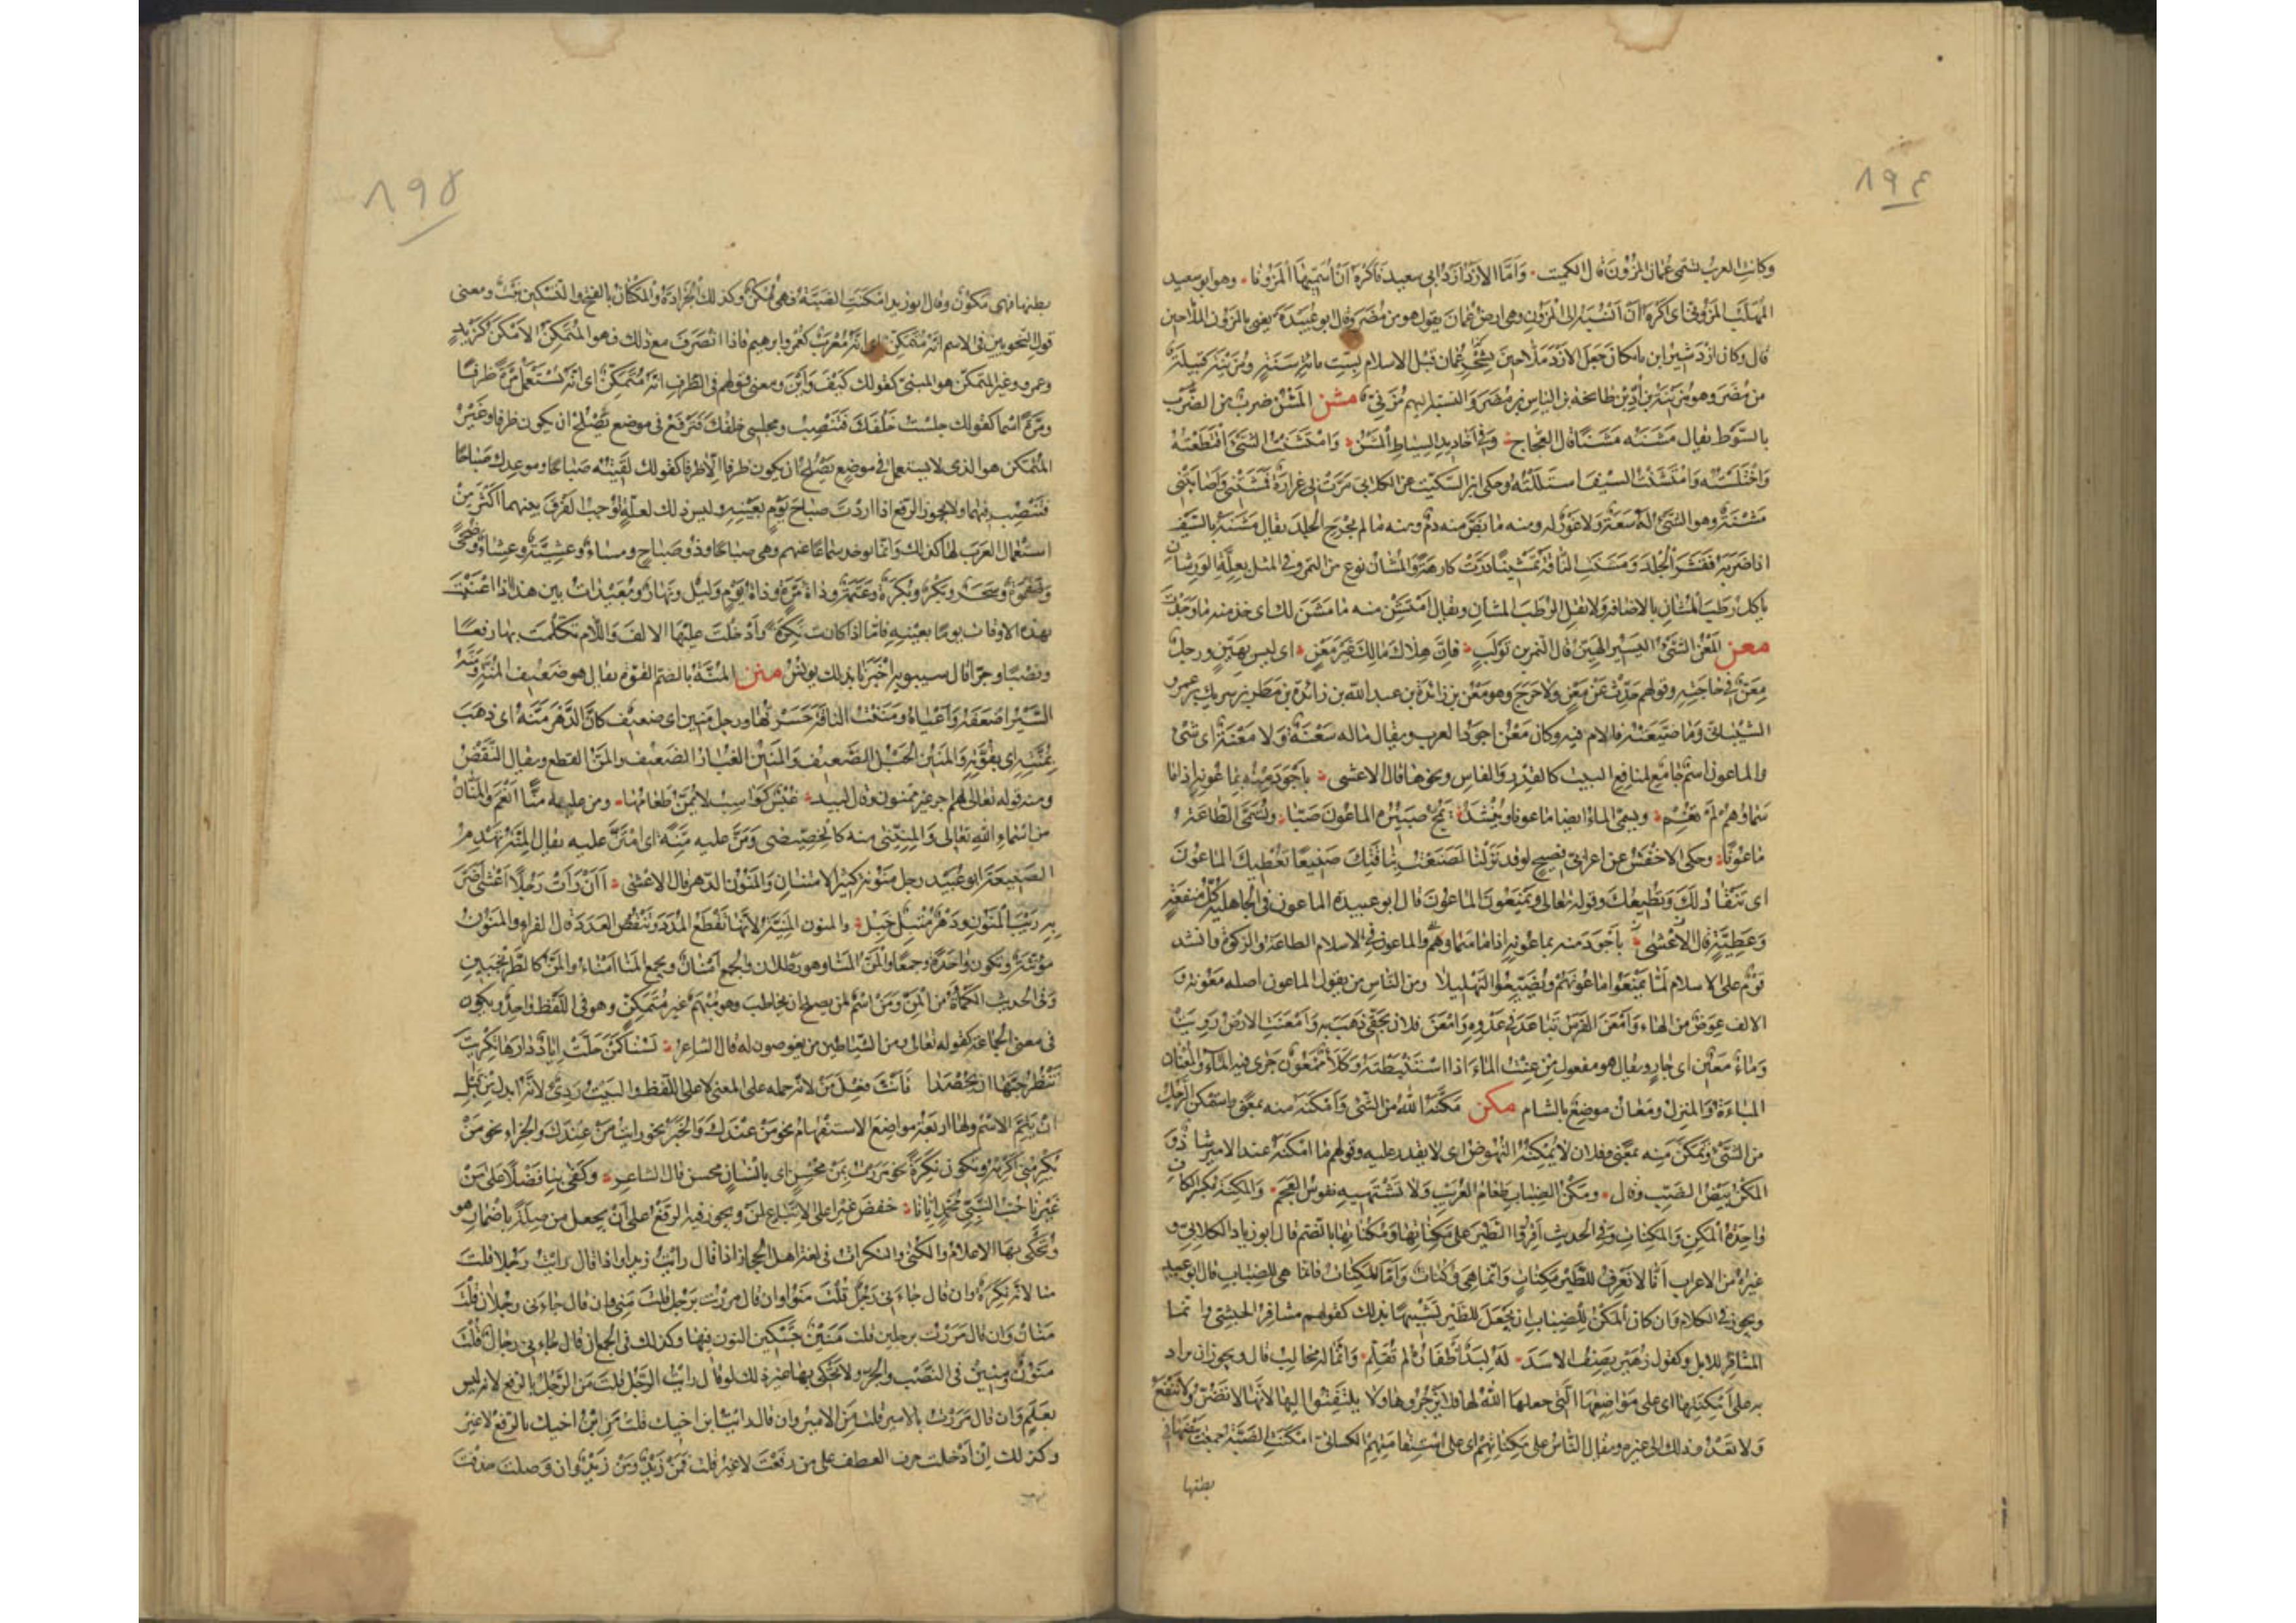 ٨٩٤
وكانت العرب تسمى عمان المزون قال الكميت وَأمّا الأزد أزد ابى سعيد فأكره أن أسمّيها المزونا وهو ابو سعيد
المهلّب المزونى اى اكره أن أنسبه الى المزون وهى ارض عمان يقول هو من مضر وقال ابو عبيدة يعنى بالمزون الملاحين
قال وكان اردشير ابن بابكان جعل الازد ملاحين بشحر عمان قبل الاسلام بستّ مائة سنة ومزينة قبيلة
من مضر وهو مزينة بن أدّ بن طابخة بن الياس بن مضر والنسبة اليهم مزنىّ مشن المشن ضرب من الضرب
بالسّوط يقال مشنه مشنا قال العجاج وفى اخاديد السياط المشّن وامتشنت الشئ اقتطعته
واختلسته وامتشنت السيف استللته وحكى ابن السكيت عن الكلابى مرّت بى غرارة فمشنتنى وأصابتنى
مشنة وهو الشئ له سعة ولا غور له ومنه ما بضّ منه دم ومنه ما لم يجرح الجلد يقال مشنه بالسّيف
اذا ضربه فقشر الجلد ومشّنت الناقة تمشينا درّت كارهة والمشان نوع من التمر وفى المثل بعلّة الورشان
يأكل رطب المشان بالاضافة ولا تقل الرطب المشان ويقال امتشن منه ما مشن لك اى خذ منه ما وجدت
معن المعن الشئ اليسير الهيّن قال النمر بن تولب فإنّ هلاك مالك غير معن اى ليس بهيّن ورجل
معن فى حاجته وقولهم حدّث عن معن ولا حرج وهو معن بن زائدة بن عبد الله بن زائدة بن مطر بن شريك بن عمرو
الشيبانى وما ضيّعته فألام فيه وكان معن اجود العرب ويقال ما له سعنة ولا معنة اى شئ
والماعون اسم جامع لمنافع البيت كالقدر والفاس ونحوها قال الاعشى بأجود منه بماعونه اذا ما
سماؤهم لم تغم ويسمى الماء ايضا ماعونا وينشد يمجّ صبيره الماعون صبّا وتسمى الطاعة
ماعونًا وحكى الاخفش عن اعرابى فصيح لو قد نزلنا لصنعت بناقتك صنيعا تعطيك الماعون
اى تنقاد لك وتطيعك وقوله تعالى ويمنعون الماعون قال ابو عبيدة الماعون فى الجاهلية كلّ منفعة
وعطيّة قال الأعشى بأجود منه بماعونه اذا ما سماؤهم والماعون فى الاسلام الطاعة والزكوة وانشد
قوم على الاسلام لمّا يمنعوا ماعونهم ويضيّعوا التهليلا ومن الناس من يقول الماعون اصله معونة و
الالف عوض من الهاء وأمعن الفرس تباعد فى عدوه وأمعن فلان بحقّى ذهب به وأمعنت الارض رويت
وماء معين اى جار ويقال هو مفعول من عنت الماء اذا استنبطته وكلأ ممعون جرى فيه الماء والمعان
المباءة والمنزل ومعان موضع بالشام مكن مكّنه الله من الشئ وأمكنه منه بمعنى واستمكن الرّجل
من الشئ وتمكّن منه بمعنى وفلان لا يمكنه النهوض اى لا يقدر عليه وقولهم ما امكنه عند الامير شاذّ و
المكن بيض الضّب وقال ومكن الضباب طعام العريب ولا تشتهيه نفوس العجم والمكنة بكسر الكاف
واحدة المكن والمكنات وفى الحديث أقرّوا الطير على مكناتها ومكناتها بالضم قال ابو زياد الكلابى و
غيره من الاعراب أنّا لا نعرف للطّير مكنات وانما هى وكنات وأمّا المكنات فانما هى للضباب قال ابو عبيد
ويجوز فى الكلام وان كان المكن للضباب ان يجعل للطير تشبيها بذلك كقولهم مشافر الحبشى وانما
المشافر للابل وكقول زهير يصف الاسد له لبد أظفاره لم تقلّم وانما له مخالب قال ويجوز ان يراد
به على أمكنتها اى على مواضعها التى جعلها الله لها فلا يزجروها ولا يلتفتوا اليها لانها لا تضر ولا تنفع
ولا تعدو ذلك الى غيره ويقال الناس على مكناتهم اى على استقامتهم الكسائى امكنت الضبّة جمعت بيضها فى
بطنها
٨٩٥
بطنها فهى مكون وقال ابو زيد امكنت الضبّة فهى ممكن وكذلك الجرادة والمكنان بالفتح والتسكين نبت ومعنى
قول النحويين فى الاسم انه متمكّن اى انه معرب كعمر وابرهيم فاذا انصرف مع ذلك فهو المتمكن الامكن كزيد
وعمرو وغير المتمكن هو المبنى كقولك كيف وأين ومعنى قولهم فى الظرف انه متمكّن اى انه يستعمل مرّة ظرفا
ومرّة اسما كقولك جلست خلفك فتنصب ومجلسى خلفك فترفع فى موضع يصلح ان يكون ظرفا وغير
المتمكن هو الذى لا يستعمل فى موضع يصلح ان يكون ظرفا الّا ظرفا كقولك لقيته صباحا وموعدك صباحا
فتنصب فيهما ولا يجوز الرفع اذا اردت صباح يوم بعينه وليس ذلك لعلّة توجب الفرق بينهما اكثر من
استعمال العرب لها كذلك وانما يوخذ سماعا عنهم وهى صباحا وذو صباح ومساء وعشية وعشاء وضحى
وضحوة وسحر وبكر وبكرة وعتمة وذات مرّة وذات يوم وليل ونهار وبعيدات بين هذا اذا عنيت
بهذه الاوقات يوما بعينه فامّا اذا كانت نكرة وأدخلت عليها الالف واللام تكلمت بها رفعا
ونصبا وجرّا قال سيبويه اخبرنا بذلك يونس منن المنّة بالضم القوّة يقال هو ضعيف المنّة ومنّه
السّير اضعفه وأعياه ومننت الناقة حسرتها ورجل منين اى ضعيف كأنّ الدّهر منّه اى ذهب
بمنّته اى بقوّته والمنين الحبل الضّعيف والمنين الغبار الضعيف والمنّ القطع ويقال النّقص
ومنه قوله تعالى لهم اجر غير ممنون وقال لبيد غبش كواسب لا يمنّ طعامها ومن عليه منّا انعم والمنّان
من اسماء الله تعالى والمنّينى منه كالخصيصى ومنّ عليه منّة اى امتنّ عليه يقال المنّة تهدم
الصنيعة ابو عبيد رجل منونة كثير الامتنان والمنون الدّهر قال الاعشى أأن رأت رجلا أعشى أضرّ
به ريب المنون ودهر متبل خبل والمنون المنيّة لانّها تقطع المدد وتنقص العدد قال الفراء والمنون
مؤنثة وتكون واحدة وجمعا والمنّ المنا وهو رطلان والجمع أمنان ويجمع المنا امناء والمنّ كالطّرنجبين
وفى الحديث الكمأة من المنّ ومن اسم لمن يصلح ان يخاطب وهو مبهم غير متمكن وهو فى اللفظ واحد ويكون
فى معنى الجماعة كقوله تعالى ومن الشياطين من يغوصون له قال الشاعر لسنا كمن حلّت اياد دارها تكريت
تنظر حبّها ان يحصدا فأنّث فعل من لانه حمله على المعنى لا على اللفظ والبيت ردئ لانّه ابدل من قبل
ان يتمّ الاسم ولها اربعة مواضع الاستفهام نحو من عندك والخبر نحو رايت من عندك والجزاء نحو من
يكرمنى أكرمه وتكون نكرة نحو مررت بمن محسن اى بانسان محسن قال الشاعر وكفى بنا فضلا على من
غيرنا حبّ النّبىّ محمّد ايّانا خفض غير على الاتباع لمن ويجوز فيه الرفع على أن يجعل من صلة باضمار هو
وتحكى بها الاعلام والكنى والنكرات فى لغة اهل الحجاز اذا قال رايت زيدا واذا قال رايت رجلا قلت
منا لانه نكرة وان قال جاءنى رجل قلت منو وان قال مررت برجل قلت منى وان قال جاءنى رجلان قلت
منان وان قال مررت برجلين قلت منين بتسكين النون فيها وكذلك فى الجمع ان قال جاءنى رجال قلت
منون ومنين فى النّصب والجرّ ولا تحكى بها غير ذلك لو قال رايت الرّجل قلت من الرّجل بالرفع لانه ليس
بعلم وان قال مررت بالامير قلت من الامير وان قال رايت ابن اخيك قلت من ابن اخيك بالرفع لا غير
وكذلك ان أدخلت حرف العطف على من رفعت لا غير قلت فمن زيد ومن زيد وان وصلت حذفت